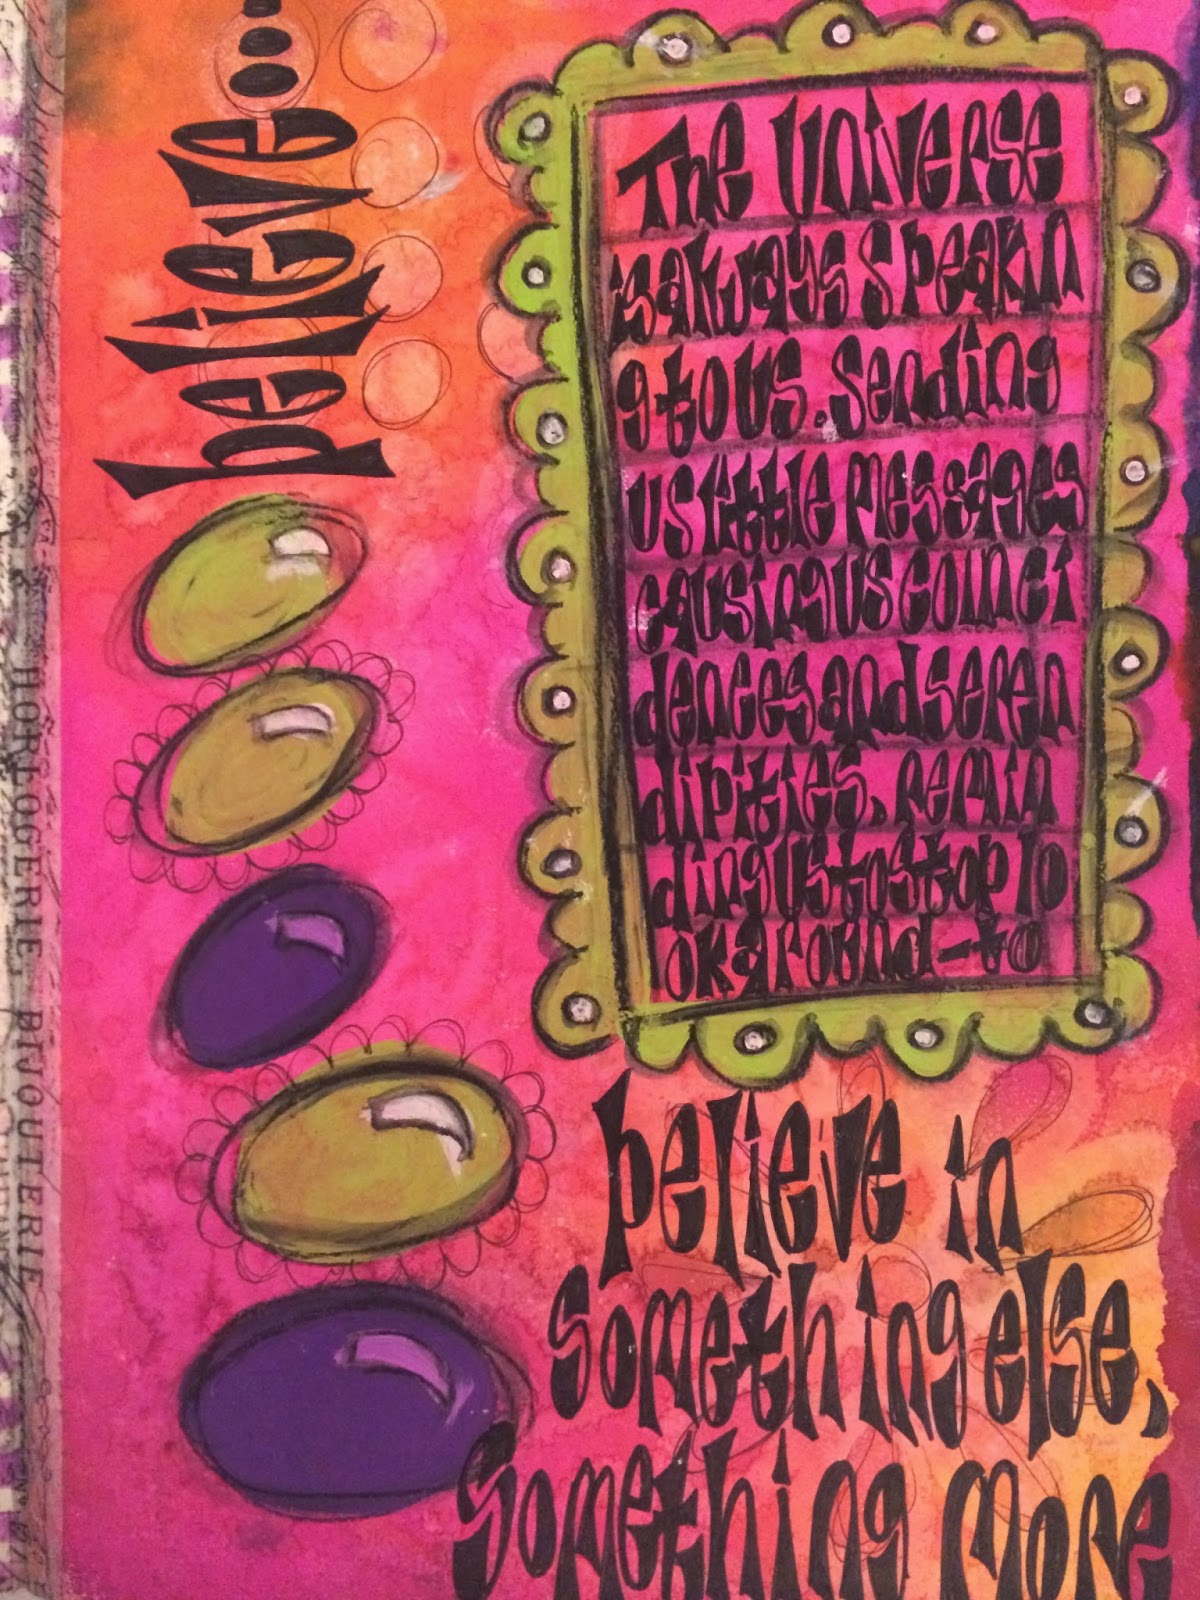 believe...
The Universe
is always speakin
g to us. Sending
us little messages
causing us coinnci
dences and seren
dipities, remin
ding us to stop lo
ok around - to
believe in
something else,
Something more
HORLOGERIE, BIJOUTERIE